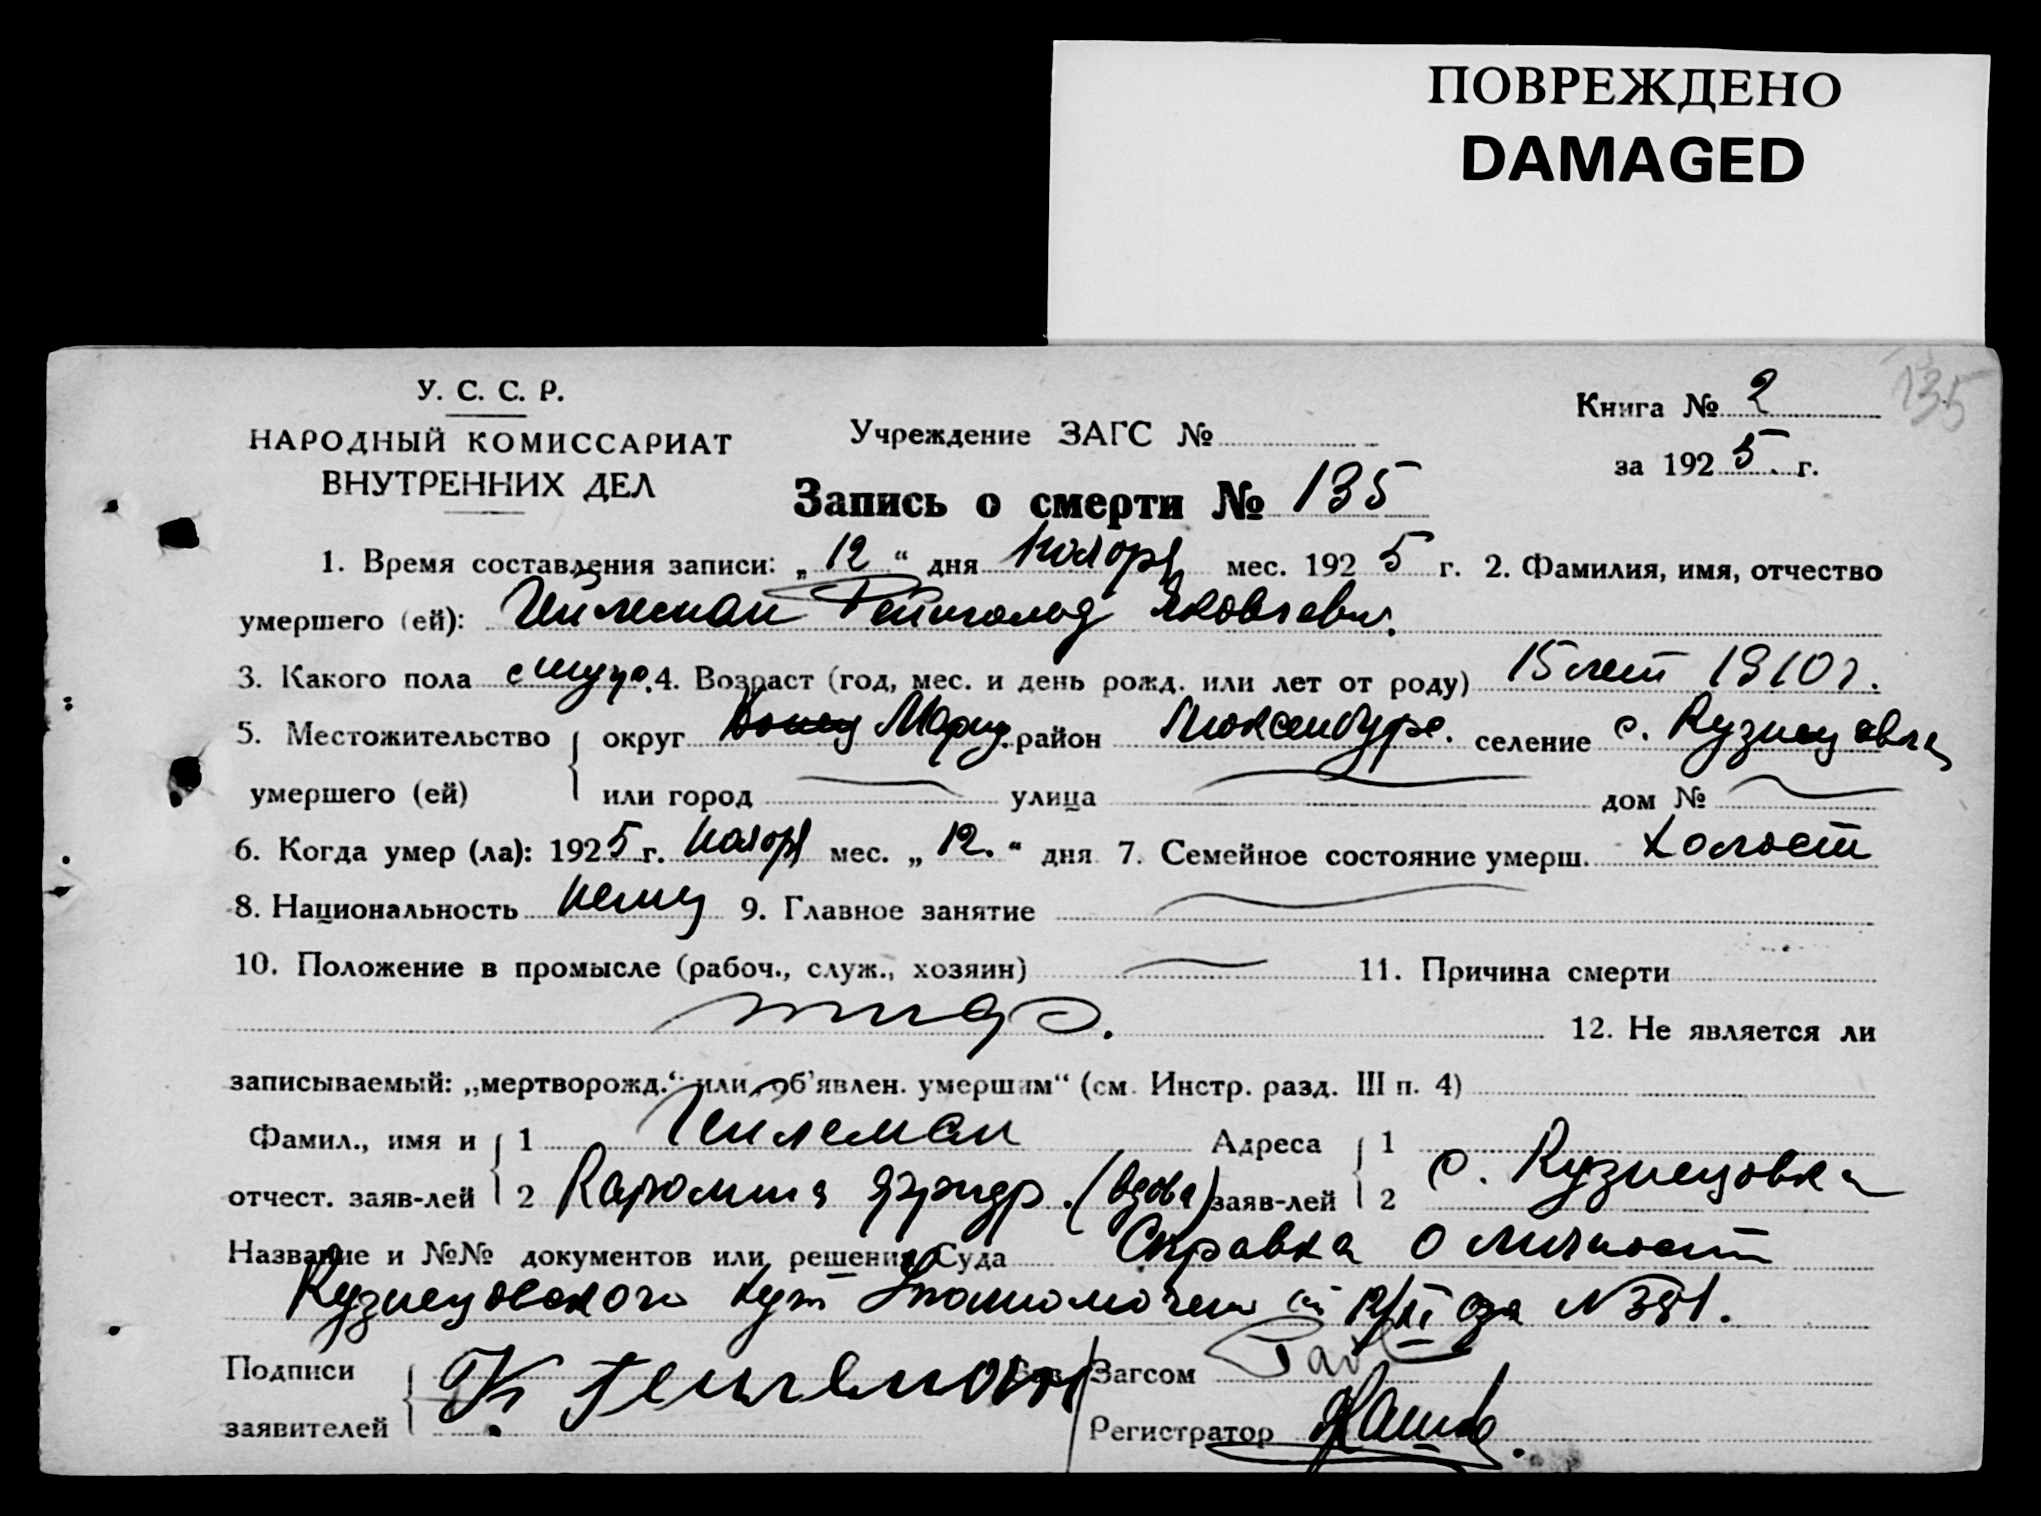 ПОВРЕЖДЕНО
DAMAGED
135
У. С. С. Р.
НАРОДНЫЙ КОМИССАРИАТ
ВНУТРЕННИХ ДЕЛ
Учреждение ЗАГС №
Книга № 2
за 1925 г.
Запись о смерти № 135
1. Время составления записи: „12“ дня Ноября мес. 1925 г. 2. Фамилия, имя, отчество
умершего (ей): Гейлеман Рейнгольд Яковлевич.
3. Какого пола 4. Возраст (год, мес. и день рожд. или лет от роду) 15 лет 1910 г.
5. Местожительство умершего (ей) округ Мариу. район Люксембург. селение с. Кузнецовка
или город улица дом №
6. Когда умер (ла): 1925 г. Ноября мес. „12.“ дня 7. Семейное состояние умерш. Холост
8. Национальность немец 9. Главное занятие
10. Положение в промысле (рабоч., служ., хозяин) 11. Причина смерти
тиф. 12. Не является ли
записываемый: „мертворожд.“ или „об'явлен. умершим“ (см. Инстр. разд. III п. 4)
Фамил., имя и отчест. заяв-лей 1 Гейлеман Адреса заяв-лей 1 с. Кузнецовка
2 Каролина (вдова) 2
Название и №№ документов или решения Суда Справка о личност
Кузнецовского Хут Уполномочен 12/XI №381.
Подписи заявителей К Гейлеман Зав. Загсом
Регистратор